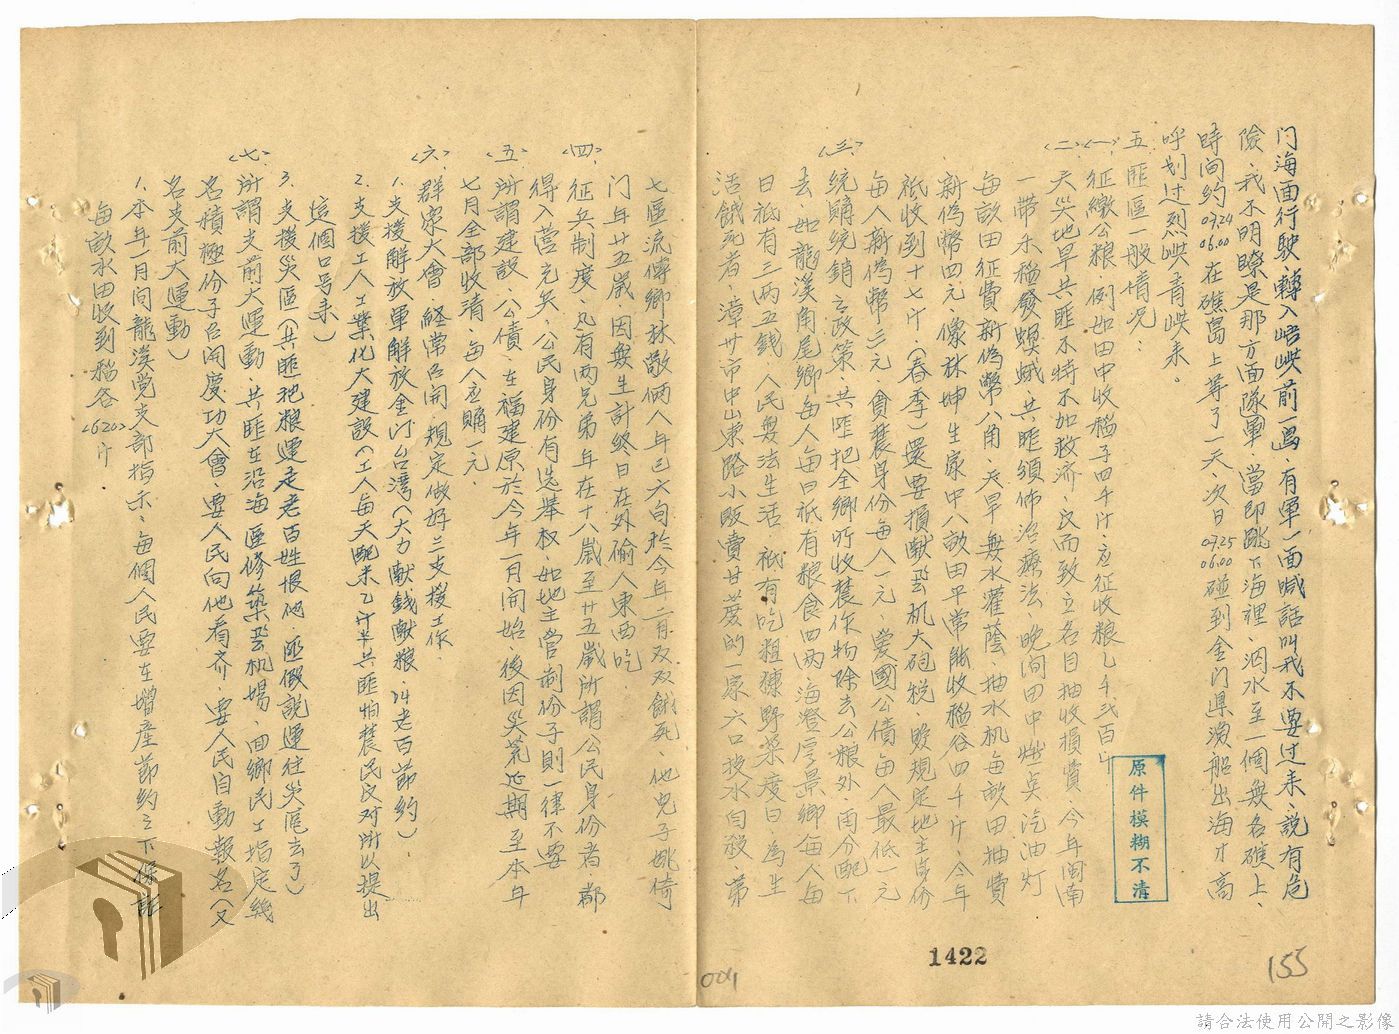 门海面行驶、轉入峿峡前 有軍一面喊話叫我不要过来、說有危
險、我不明瞭是那方面隊軍、當即跳下海裡、泅水至一個無名礁上、
時間約0724 06.00在礁島上等了一天、次日0725 06.00碰到金门県漁船出海才高
呼划过烈屿青岐来。
五、匪區一般情况:
<一>征繳公粮、例如田中收稻子四千斤、应征收粮乙千弍百斤
<二>天災地旱、共匪不特不加救济、反而致立名目抽收損費、今年闽南
一帶禾稻發螟蛾、共匪須佈治療法、晚间田中燃点汽油灯
每畝田征費新偽幣八角、天旱無水灌蔭、抽水机每畝田抽費
新偽幣四元、像林坤生家中八畝田平常能收稻谷四千斤、今年
祇收到十七斤、(春季)還要損献飛机大砲税、照規定地主身份
每人新偽幣三元、貧農身份每人一元、愛國公債每人最低一元
<三>統購統銷之政策、共匪把全鄉所收農作物除去公粮外、再分配下
去、如龍溪角尾鄉每人每日祇有粮食四两、海澄厚景鄉每人每
日祇有三两五錢、人民無法生活、祇有吃粗糠野菜度日、為生
活餓死者、漳州市中山東路小販賣甘蔗的一家六口投水自殺、第
七區流傳鄉林敬俩人年已六旬於今年二月双双餓死、他兒子姚倚
门年廿五歲因無生計終日在外偷人東西吃
<四>征兵制度、凡有两兄弟年在十八歲至廿五歲所謂公民身份者、都
得入营充矣、公民身份有选举权、如地主管制份子則一律不要
<五>所謂建設公債、在福建原於今年一月開始、後因災荒延期至本年
七月全部收清、每人应購一元、
<六>群眾大會、経常召開規定做好三支援工作、
1.支援解放軍解放金门台湾(大力献錢献粮、叫老百節約)
2.支援工人工業化大建設(工人每天配米乙斤半共匪怕農民反对所以提出
這個口号来)
3.支援災區(共匪把粮運走老百姓恨他、匪假說運往災區去了)
<七>所謂支前大運動、共匪在沿海區修築飛机場、回鄉民工指定幾
名積極份子召開慶功大會、要人民向他看齐、要人民自動報名(又
名支前大運動)
1.本年一月间龍溪黨支部指示、每個人民要在增產節約之下保証
每畝水田收到稻谷<620>斤
原件模糊不清
1422
155
004
請合法使用公開之影像